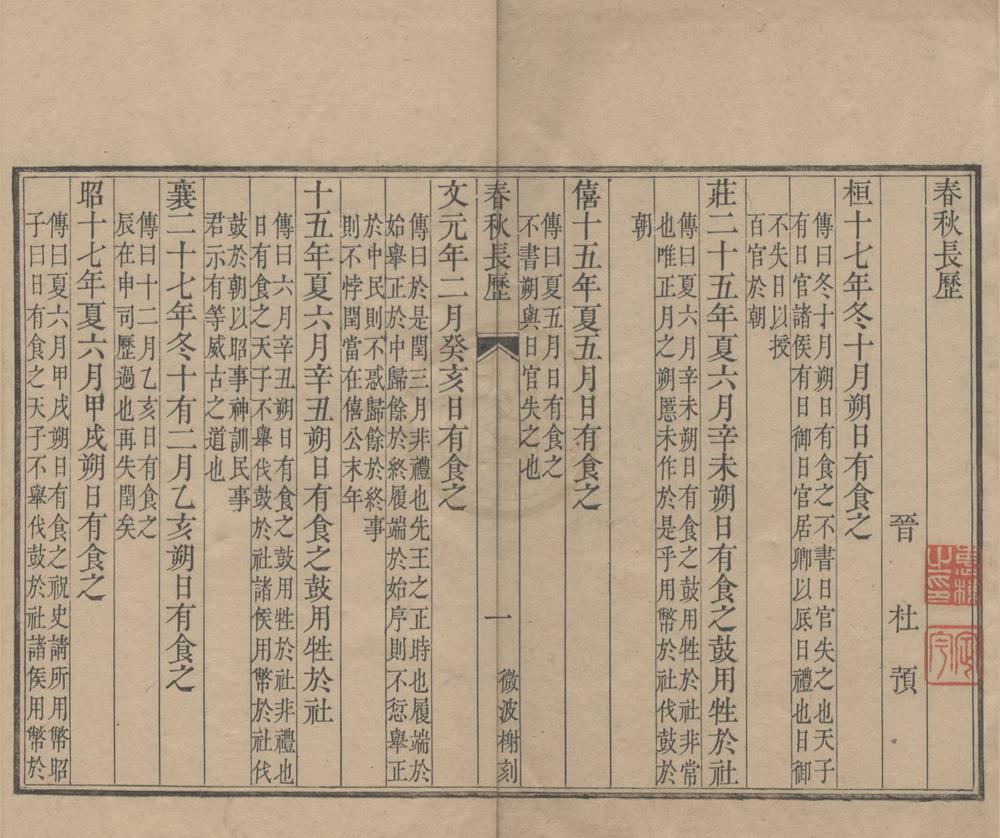 春秋長歷
晉 杜 預
桓十七年冬十月朔日有食之
傳曰冬十月朔日有食之不書日官失之也天子
有日官諸侯有日御日官居卿以厎日禮也日御
不失日以授
百官於朝
莊二十五年夏六月辛未朔日有食之鼓用牲於社
傳曰夏六月辛未朔日有食之鼓用牲於社非常
也唯正月之朔慝未作於是乎用幣於社伐鼓於
朝
僖十五年夏五月日有食之
傳曰夏五月日有食之
不書朔與日官失之也
春秋長歷
一
微波榭刻
文元年二月癸亥日有食之
傳曰於是閏三月非禮也先王之正時也履端於
始舉正於中歸餘於終履端於始序則不愆舉正
於中民則不惑歸餘於終事
則不悖閏當在僖公末年
十五年夏六月辛丑朔日有食之鼓用牲於社
傳曰六月辛丑朔日有食之鼓用牲於社非禮也
日有食之天子不舉伐鼓於社諸侯用幣於社伐
鼓於朝以昭事神訓民事
君示有等威古之道也
襄二十七年冬十有二月乙亥朔日有食之
傳曰十二月乙亥日有食之
辰在申司歷過也再失閏矣
昭十七年夏六月甲戌朔日有食之
傳曰夏六月甲戌朔日有食之祝史請所用幣昭
子曰日有食之天子不舉伐鼓於社諸侯用幣於